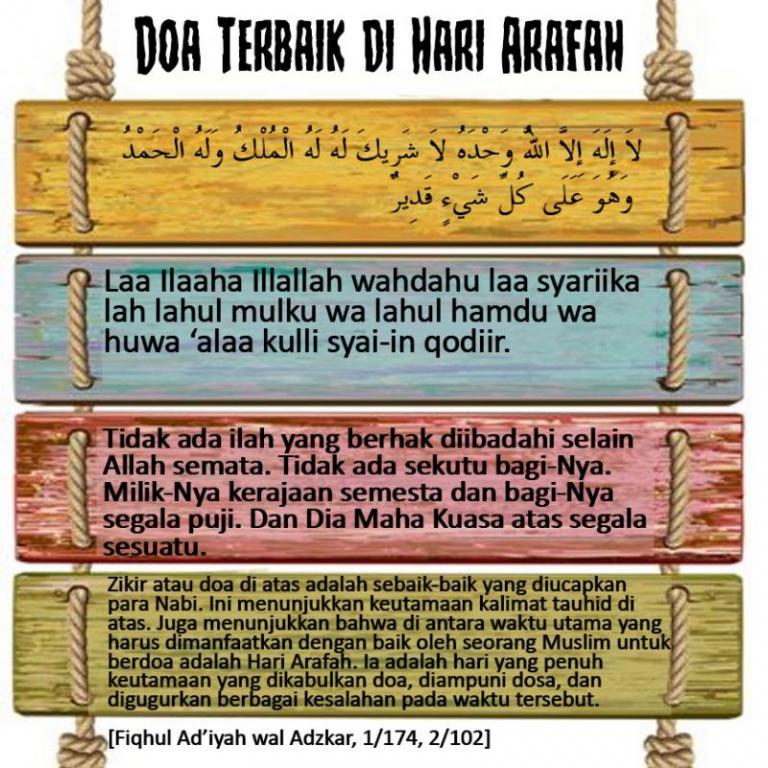 Doa Terbaik di Hari Arafah
لاَ إِلَهَ إِلاَّ اللهُ وَحْدَهُ لاَ شَرِيكَ لَهُ لَهُ الْمُلْكُ وَلَهُ الْحَمْدُ
وَهُوَ عَلَى كُلِّ شَيْءٍ قَدِيرٌ
Laa Ilaaha Illallah wahdahu laa syariika
lah lahul mulku wa lahul hamdu wa
huwa ‘alaa kulli syai-in qodiir.
Tidak ada ilah yang berhak diibadahi selain
Allah semata. Tidak ada sekutu bagi-Nya.
Milik-Nya kerajaan semesta dan bagi-Nya
segala puji. Dan Dia Maha Kuasa atas segala
sesuatu.
Zikir atau doa di atas adalah sebaik-baik yang diucapkan
para Nabi. Ini menunjukkan keutamaan kalimat tauhid di
atas. Juga menunjukkan bahwa di antara waktu utama yang
harus dimanfaatkan dengan baik oleh seorang Muslim untuk
berdoa adalah Hari Arafah. Ia adalah hari yang penuh
keutamaan yang dikabulkan doa, diampuni dosa, dan
digugurkan berbagai kesalahan pada waktu tersebut.
[Fiqhul Ad’iyah wal Adzkar, 1/174, 2/102]